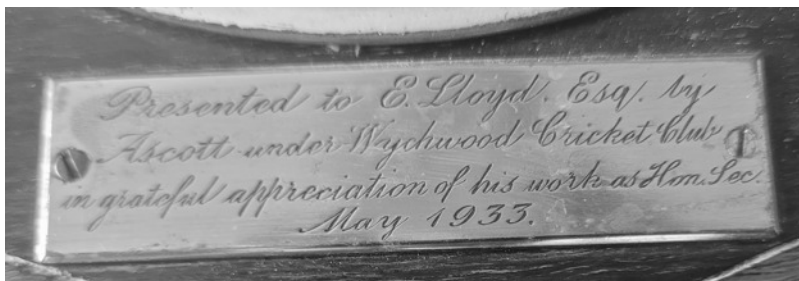 Presented to E. Lloyd. Esq. by
Ascott-under-Wychwood Cricket Club
in grateful appreciation of his work as Hon. Sec.
May 1933.